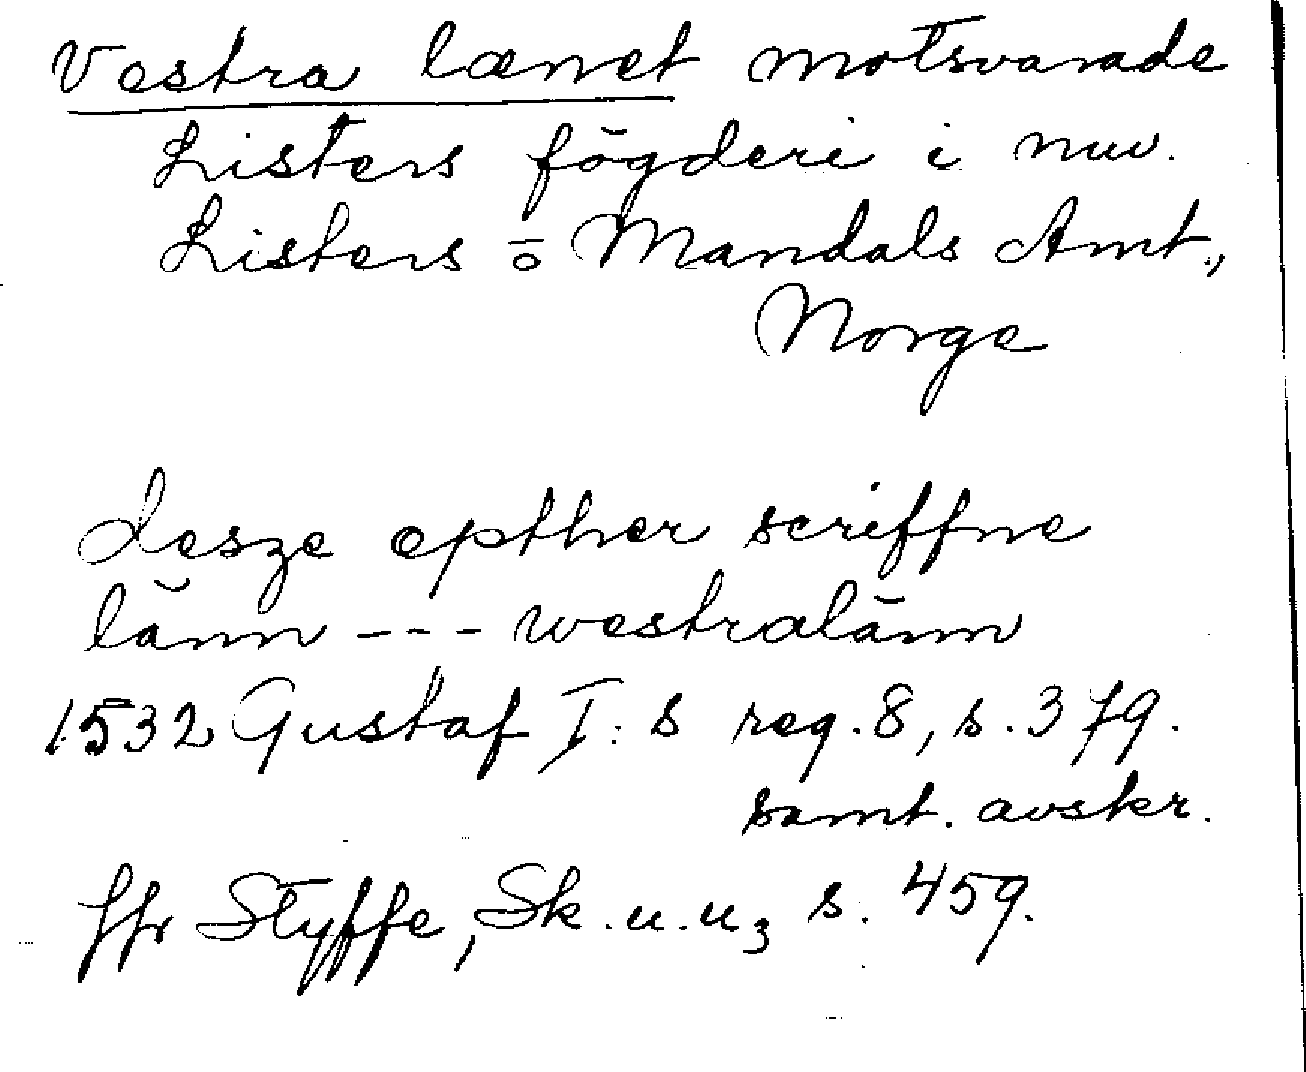 Vestra lænet motsvarade
Listers fögderi i nuv.
Listers ō Mandals Amt.,
Norge
desze epther scriffne
länn --- westralänn
1532 Gustaf I:s reg. 8, s. 379.
samt. avskr.
Jfr Styffe, Sk. u. u₃ s. 459.